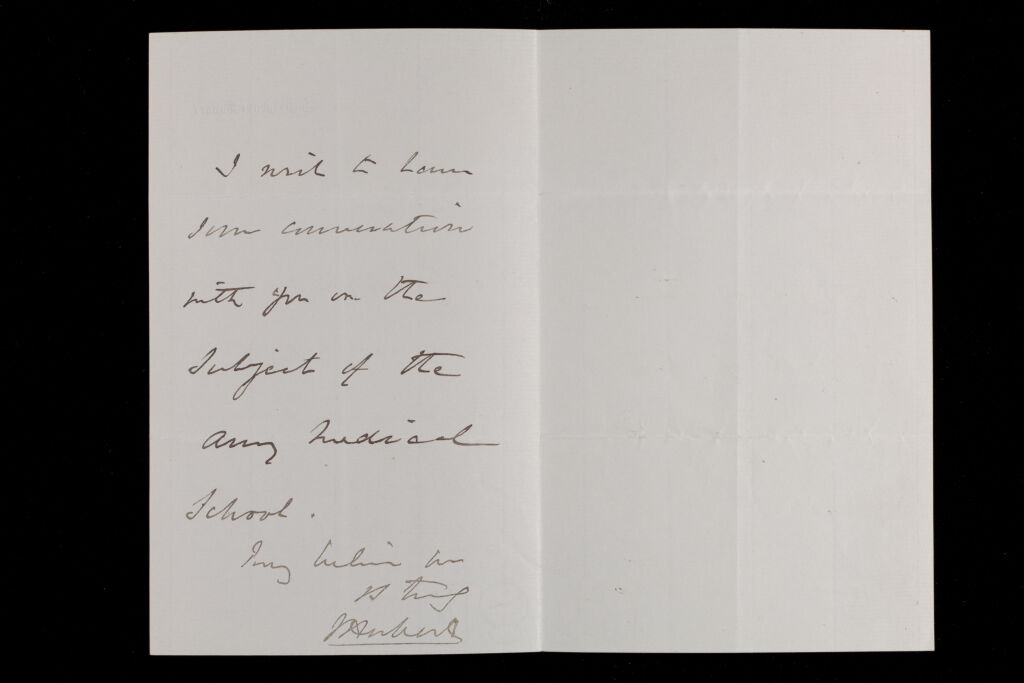 I wish to have
some conversation
with you on the
Subject of the
Army Medical
School.
Truly
SHerbert